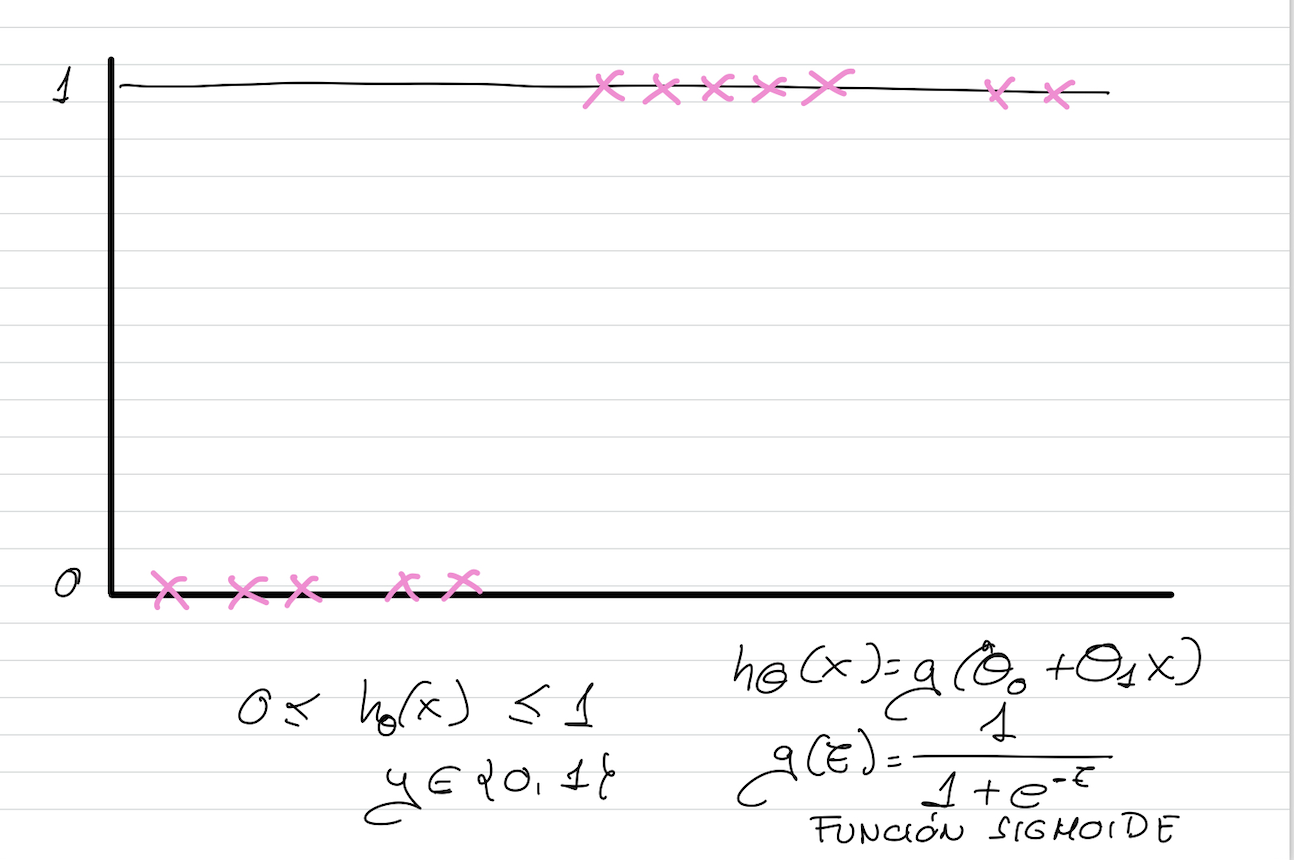 1
0
0 ≤ hθ(x) ≤ 1
y ∈ {0, 1}
hθ(x) = g(θ₀ + θ₁x)
g(z) = 1 / (1 + e^-z)
FUNCIÓN SIGMOIDE